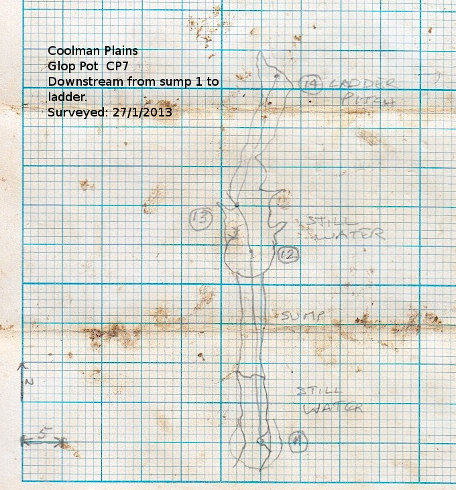 Coolman Plains
Glop Pot CP7
Downstream from sump 1 to
ladder.
Surveyed: 27/1/2013
14 LADDER
PITCH
13
STILL
WATER
12
SUMP
N
STILL
WATER
5